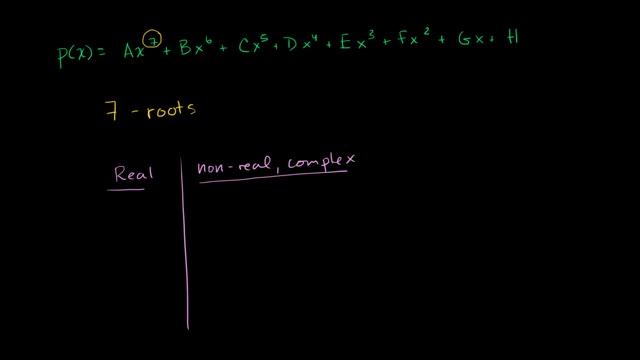 p(x) = Ax⁷ + Bx⁶ + Cx⁵ + Dx⁴ + Ex³ + Fx² + Gx + H
7 - roots
Real non-real, complex